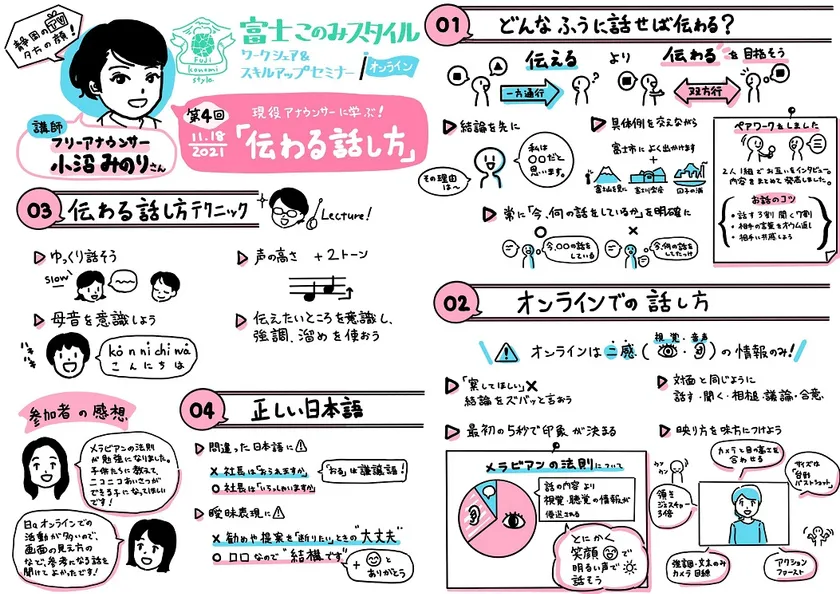 静岡の
夕方の顔!
講師
フリーアナウンサー
小沼 みのりさん
Fuji
Konomi
style
富士このみスタイル
ワークシェア&
スキルアップセミナー in オンライン
第4回
11.18
2021
現役アナウンサーに学ぶ!
「伝わる話し方」
01 どんなふうに話せば伝わる?
伝える より 伝わる を目指そう
一方通行
双方向
結論を先に
その理由
は〜
私は
〇〇だと
思います。
具体例を交えながら
富士市に よく出かけます
+
富士山を見に
田子の浦
常に「今、何の話をしているか」を明確に
今、〇〇の話を
している
今、何の話を
してたっけ
ペアワークをしました
2人1組で お互いをインタビュー。
内容をまとめて発表しました。
お話のコツ
・話す3割 聞く7割
・相手の言葉をオウム返し
・相手に共感しよう
02 オンラインでの話し方
オンラインは二感(視覚・音声)の情報のみ!
「察してほしい」×
結論をズバッと言おう
対面と同じように
話す・聞く・相槌・議論・合意
最初の5秒で印象が決まる
メラビアンの法則について
話の内容より
視覚・聴覚の情報が
優返される
とにかく
笑顔で
明るい声で
話そう
映り方を味方につけよう
カメラと目の高さを
合わせる
サイズは
「台形
バストショット」
頷き
ジェスチャー
3倍
強調・文末のみ
カメラ目線
アクション
ファースト
03 伝わる話し方テクニック
Lecture!
ゆっくり話そう
slow
声の高さ +2トーン
母音を意識しよう
ハキ
ハキ
kó n ni chi wá
こんにちは
伝えたいところを意識し、
強調、溜めを使おう
04 正しい日本語
間違った日本語に
× 社長は「おられますか」
○ 社長は「いらっしゃいますか」
「おる」は謙譲語!
曖昧表現に
× 勧めや提案を「断りたい」ときの"大丈夫"
○ □□なので"結構です"
+
ありがとう
参加者の感想
メラビアンの法則
が勉強になりました。
子供たちに教えて、
ニコニコあいさつが
できる子になってほしい
です!
日々オンラインでの
活動が多いので、
画面の見え方の
など、参考になる話を
聞けてよかったです!